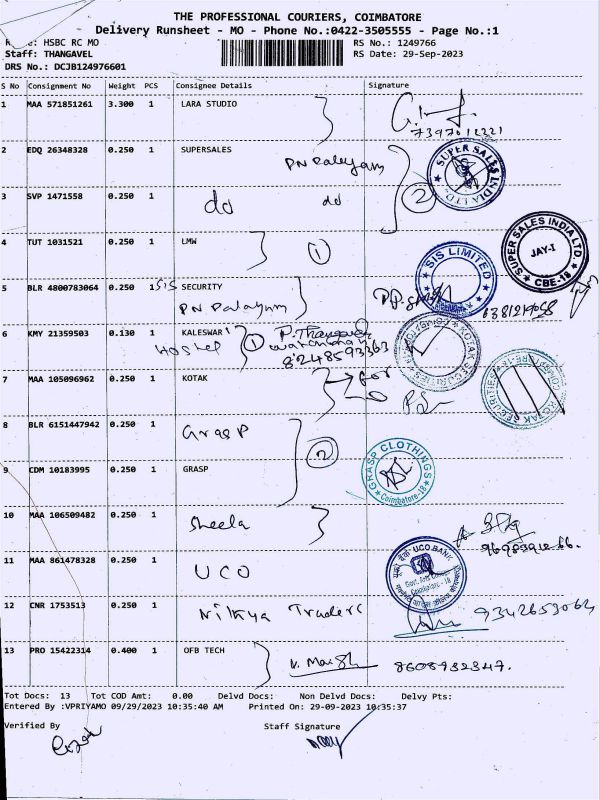 THE PROFESSIONAL COURIERS, COIMBATORE
Delivery Runsheet - MO - Phone No.:0422-3505555 - Page No.:1
HSBC RC MO
RS No.: 1249766
Staff: THANGAVEL
RS Date: 29-Sep-2023
DRS No.: DCJB124976601
S No Consignment No Weight PCS Consignee Details Signature
1 MAA 571851261 3.300 1 LARA STUDIO
2 EDQ 26348328 0.250 1 SUPERSALES
PN Palayam
SUPER SALES INDIA LTD.
3 SVP 1471558 0.250 1 do do 2
4 TUT 1031521 0.250 1 LMW 1
SUPER SALES INDIA LTD. JAY-I CBE-18
SIS LIMITED
5 BLR 4800783064 0.250 1 SIS SECURITY
PN Palayam
6 KMY 21359503 0.130 1 KALESWAR 1 P. Thangavel
Hostel
8248593363
KOTAK SECURITIES
7 MAA 105096962 0.250 1 KOTAK for
KOTAK SECURITIES
8 BLR 6151447942 0.250 1 Grasp
2
GRASP CLOTHINGS Coimbatore-18
9 CDM 10183995 0.250 1 GRASP
10 MAA 106509482 0.250 1 Sheela
11 MAA 861478328 0.250 1 UCO
UCO BANK
12 CNR 1753513 0.250 1 Nithya Traders 9342653064
13 PRO 15422314 0.400 1 OFB TECH
8608932347.
Tot Docs: 13 Tot COD Amt: 0.00 Delvd Docs: Non Delvd Docs: Delvy Pts:
Entered By :VPRIYAMO 09/29/2023 10:35:40 AM Printed On: 29-09-2023 10:35:37
Verified By Staff Signature